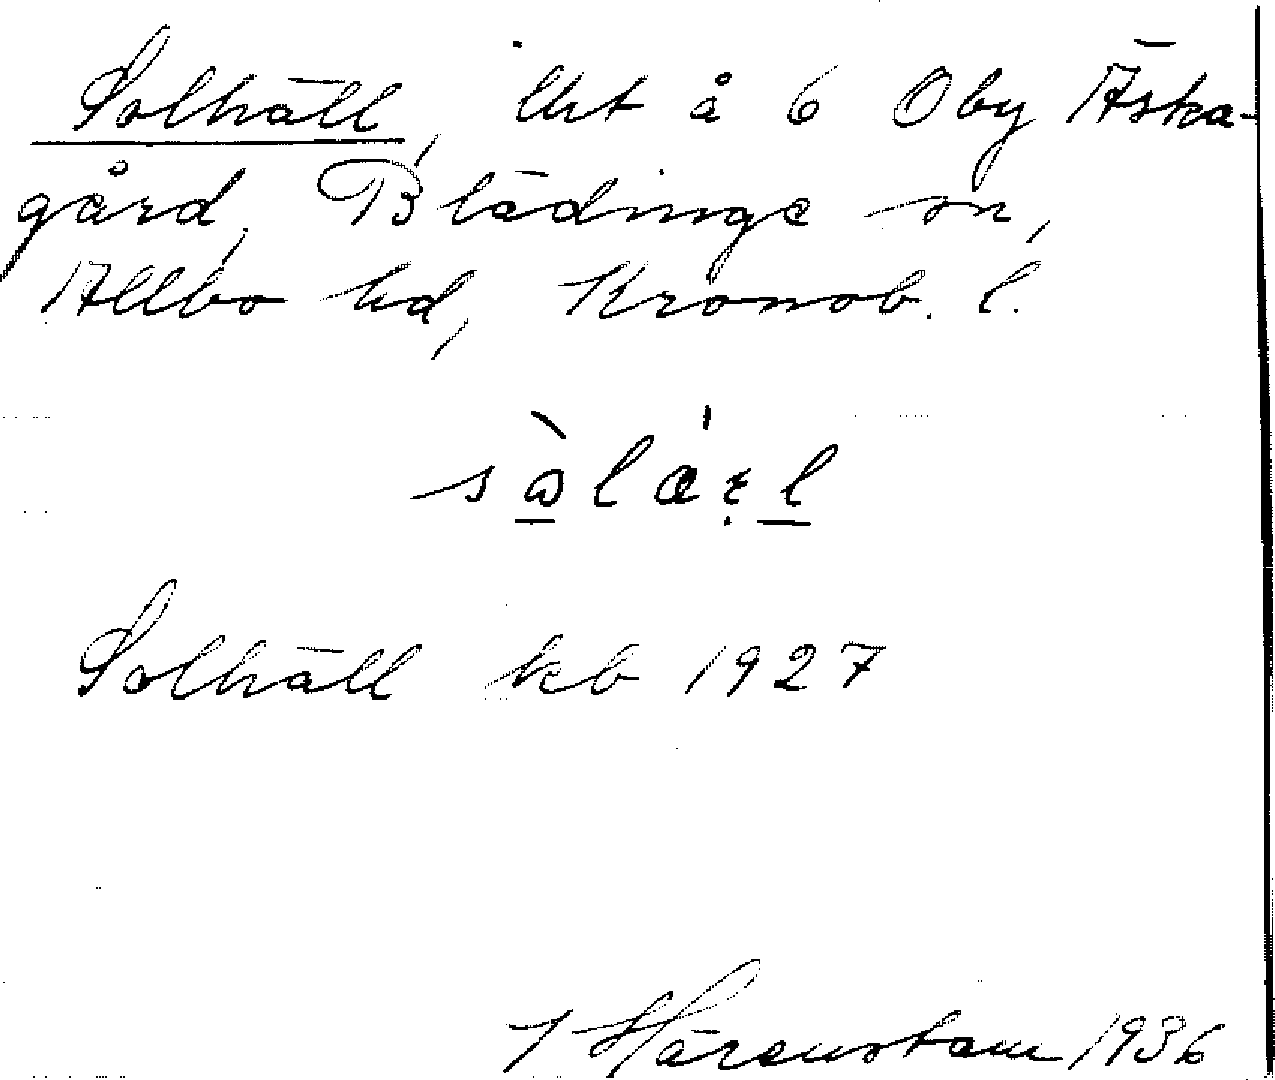 Solhäll, lht å 6 Oby Äska-
gård, Blädinge sn,
Allbo hd, Kronob. l.
Solhäll kb 1927
J Härenstam 1936